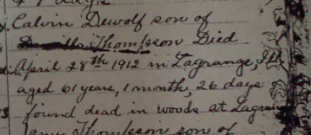 Calvin Dewolf son of
Thompson Died
April 28th 1912 in Lagrange,
aged 61 years, 1 month, 26 days
found dead in woods at
Thompson son of